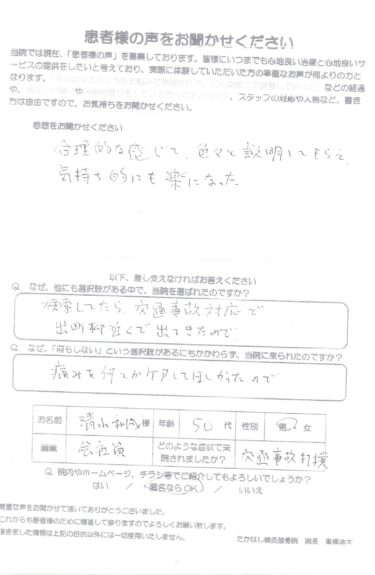 患者様の声をお聞かせください
当院では現在、「患者様の声」を募集しております。皆様にいつまでも心地良い治療と心地良いサ
ービスの提供をしたいと考えており、実際に体験していただいた方の率直なお声が何よりの力と
なります。 などの経過
や、 や スタッフの対応や人柄など、書き
方は自由ですので、お気持ちをお聞かせください。
感想をお聞かせください
合理的な感じで、色々と説明してもらえ、
気持ち的にも楽になった
以下、差し支えなければお答えください
Q なぜ、他にも選択肢がある中で、当院を選ばれたのですか?
検索してたら、交通事故対応で
出町柳近くで出てきたので
Q なぜ、「何もしない」という選択肢があるにもかかわらず、当院に来られたのですか?
痛みを何とかケアしてほしかったので
お名前 清水 様 年齢 50 代 性別 男 女
職業 会社員 どのような症状で来院されましたか? 交通事故打撲
Q 院内やホームページ、チラシ等でご紹介してもよろしいでしょうか?
はい / 匿名ならOK / いいえ
貴重な声をお聞かせて頂いてありがとうございました。
これからも患者様のために精進して参りますのでよろしくお願い致します。
頂きました情報は上記の目的以外には一切使用いたしません。 たかはし鍼灸接骨院 院長